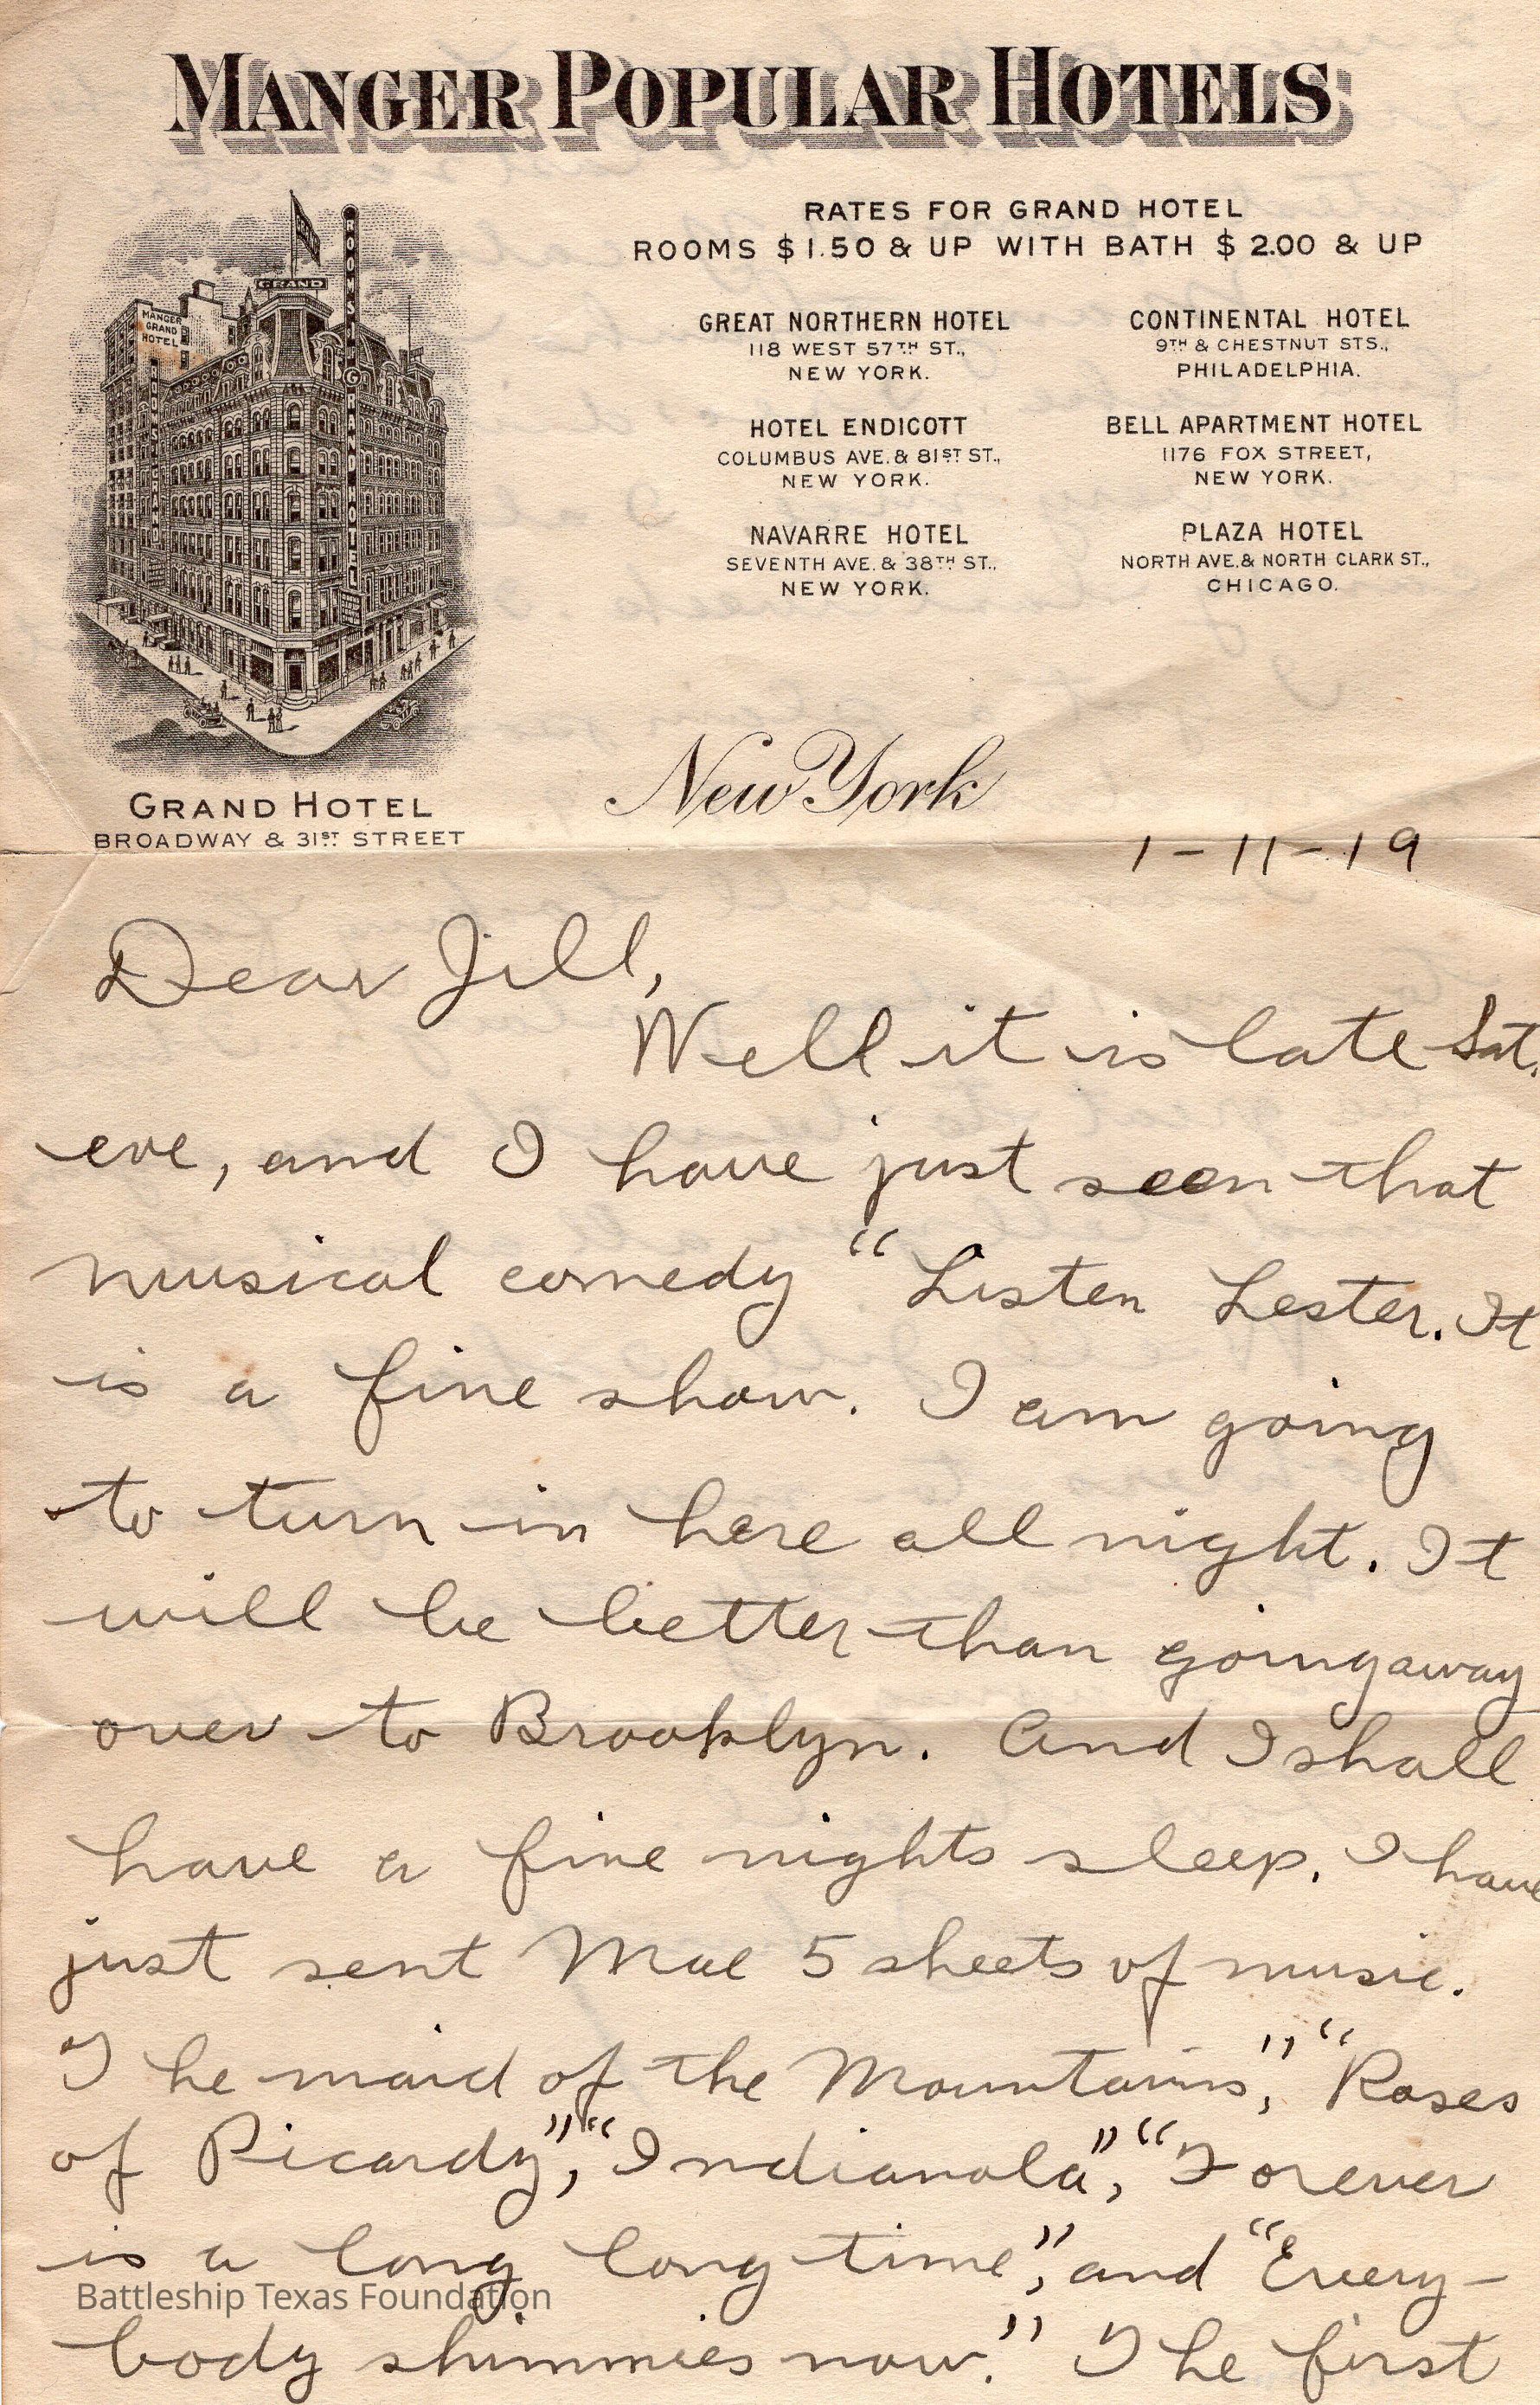 MANGER POPULAR HOTELS
RATES FOR GRAND HOTEL
ROOMS $1.50 & UP WITH BATH $2.00 & UP
GRAND
MANGER
GRAND
HOTEL
GREAT NORTHERN HOTEL
118 WEST 57TH ST.,
NEW YORK.
HOTEL ENDICOTT
COLUMBUS AVE. & 81ST ST.,
NEW YORK.
NAVARRE HOTEL
SEVENTH AVE. & 38TH ST.,
NEW YORK.
CONTINENTAL HOTEL
9TH & CHESTNUT STS.,
PHILADELPHIA.
BELL APARTMENT HOTEL
1176 FOX STREET,
NEW YORK.
PLAZA HOTEL
NORTH AVE. & NORTH CLARK ST.,
CHICAGO.
GRAND HOTEL
BROADWAY & 31ST STREET
New York
1-11-19
Dear Jill,
Well it is late Sat.
eve, and I have just seen that
musical comedy "Listen Lester. It
is a fine show. I am going
to turn in here all night. It
will be better than going away
over to Brooklyn. And I shall
have a fine nights sleep. I have
just sent Mae 5 sheets of music.
The maid of the Mountains", "Roses
of Picardy", "Indianola", "Forever
is a long long time", and "Every-
body shimmies now." The first
Battleship Texas Foundation